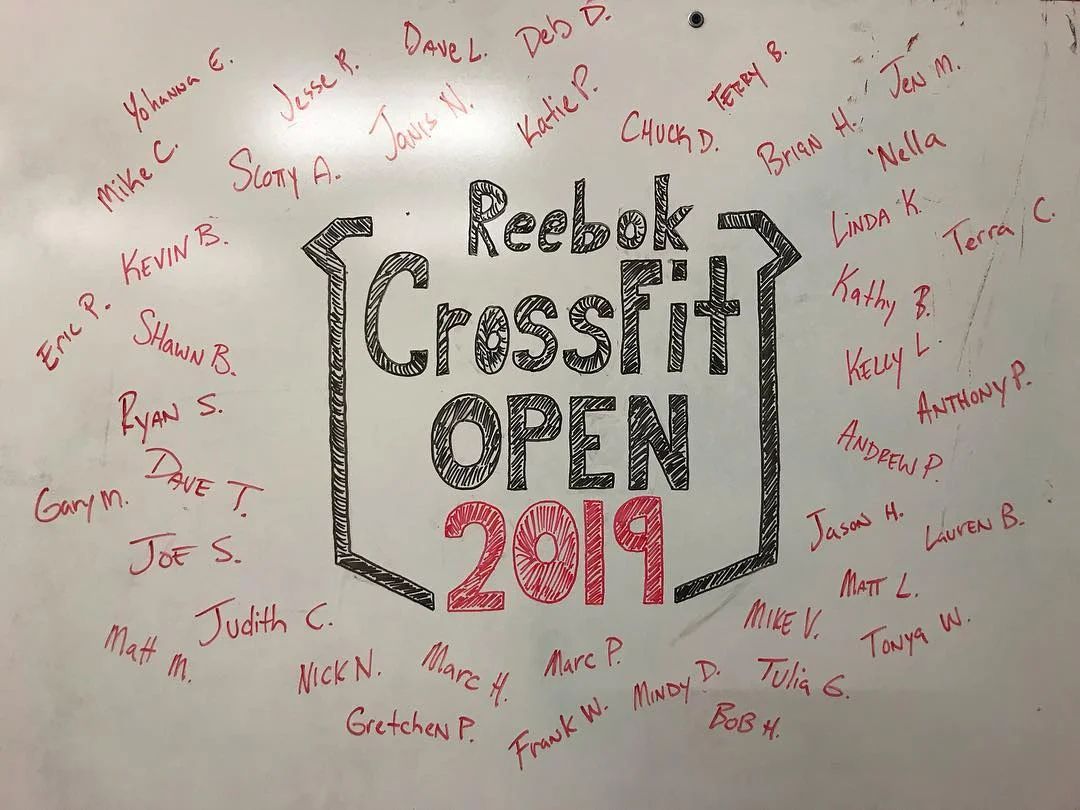 Dave L.
Deb D.
Yohanna E.
Jesse R.
Terry B.
Jen M.
Janis N.
Katie P.
Chuck D.
Brian H.
'Nella
Mike C.
Scotty A.
Reebok
CrossFit
OPEN
2019
Linda K.
Terra C.
Kevin B.
Kathy B.
Eric P.
Shawn B.
Kelly L.
Anthony P.
Ryan S.
Andrew P.
Dave T.
Gary M.
Jason H.
Lauren B.
Joe S.
Matt L.
Judith C.
Mike V.
Tonya W.
Matt M.
Nick N.
Marc H.
Marc P.
Mindy D.
Gretchen P.
Frank W.
Bob H.